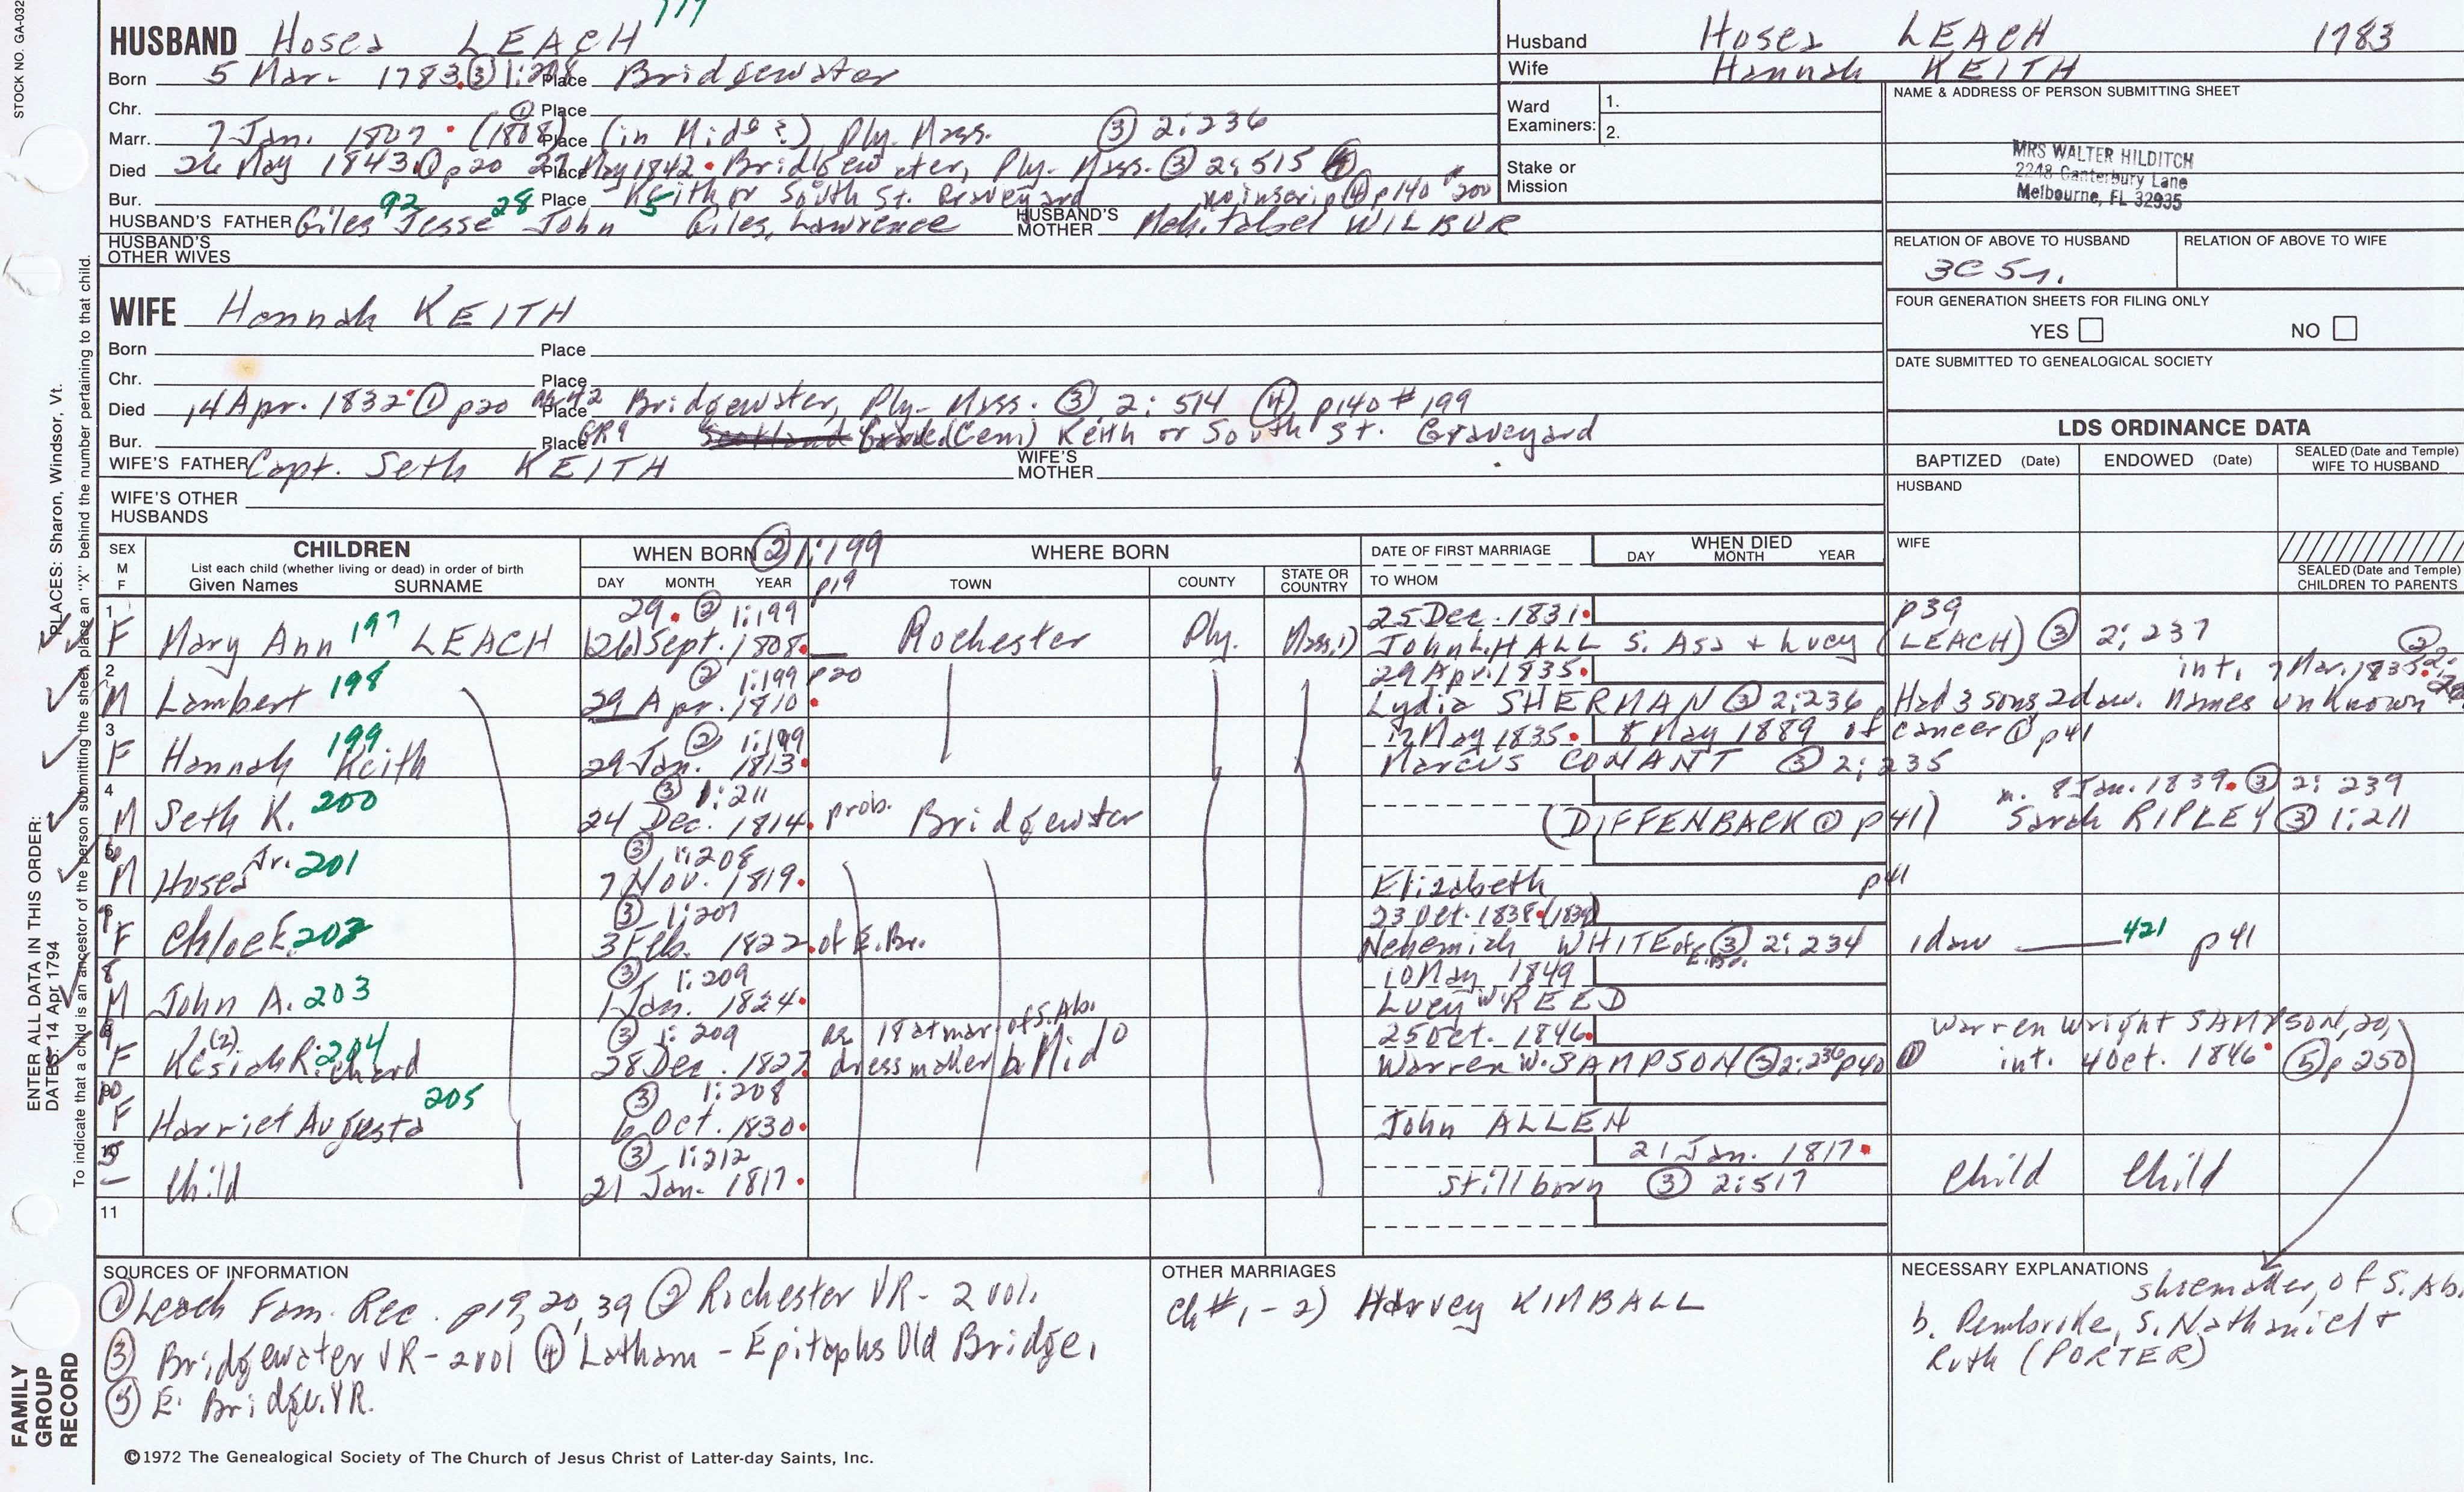 STOCK NO. GA-032
777
HUSBAND Hosea LEACH
Born 5 Mar. 1783 ③ 1:208 Place Bridgewater
Chr. Place
Marr. 7 Jan. 1807 (1808) ① Place (in Mid ?) Ply. Mass. ③ 2:236
Died 26 May 1843 ① p20 27 May 1842 Place Bridgewater, Ply. Mass. ③ 2:515 ④
Bur. Place Keith or South St. Graveyard no inscrip ④ p140 #200
HUSBAND'S FATHER Giles 92 Jesse 28 John 5 Giles, Lawrence HUSBAND'S MOTHER Mehitabel WILBUR
HUSBAND'S OTHER WIVES
Husband Hosea LEACH 1783
Wife Hannah KEITH
Ward Examiners: 1.
2.
Stake or Mission
NAME & ADDRESS OF PERSON SUBMITTING SHEET
MRS WALTER HILDITCH
2248 Canterbury Lane
Melbourne, FL 32935
RELATION OF ABOVE TO HUSBAND RELATION OF ABOVE TO WIFE
3C 5r.
FOUR GENERATION SHEETS FOR FILING ONLY
YES NO
DATE SUBMITTED TO GENEALOGICAL SOCIETY
WIFE Hannah KEITH
Born Place
Chr. Place
Died 14 Apr. 1832 ① p20 Place Bridgewater, Ply. Mass. ③ 2:514 ④ p140 #199
Bur. Place GR9 (Cem) Keith or South St. Graveyard
WIFE'S FATHER Capt. Seth KEITH WIFE'S MOTHER
WIFE'S OTHER HUSBANDS
LDS ORDINANCE DATA
BAPTIZED (Date) ENDOWED (Date) SEALED (Date and Temple) WIFE TO HUSBAND
HUSBAND
WIFE
SEALED (Date and Temple) CHILDREN TO PARENTS
SEX M F CHILDREN List each child (whether living or dead) in order of birth Given Names SURNAME
WHEN BORN ② 1:199 p19 DAY MONTH YEAR
WHERE BORN TOWN COUNTY STATE OR COUNTRY
DATE OF FIRST MARRIAGE TO WHOM
WHEN DIED DAY MONTH YEAR
1 29. ② 1:199 25 Dec. 1831 p39
F Mary Ann 197 LEACH (26) Sept. 1808 Rochester Ply. Mass. John L. HALL S. Asa + Lucy (LEACH) ③ 2:237
2 ② 1:199 p20 29 Apr. 1835 int. 7 Mar. 1835 ②
M Lambert 198 29 Apr. 1810 Lydia SHERMAN ③ 2:236 Had 3 sons, 2 daw. names unknown
3 ② 1:199 12 May 1835 8 May 1889 of cancer ① p41
F Hannah Keith 199 29 Jan. 1813 Marcus CONANT ③ 2:235
4 ③ 1:211 m. 8 Jan. 1839 ③ 2:239
M Seth K. 200 24 Dec. 1814 prob. Bridgewater (DIFFENBACK ① p41) Sarah RIPLEY ③ 1:211
6 ③ 1:208
M Hosea Jr. 201 7 Nov. 1819 Elizabeth p41
7 ③ 1:207 23 Oct. 1838 (1839)
F Chloe E. 202 3 Feb. 1822 of E. Br. Nehemiah WHITE of E. Br. ③ 2:234 1 daw 421 p41
8 ③ 1:209 10 May 1849
M John A. 203 1 Jan. 1824 Lucy W. REED
9 ③ 1:209 ae 18 at mar. of S. Ab. 25 Oct. 1846 Warren Wright SAMPSON, 20,
F Kesiah Richard (2) 204 28 Dec. 1827 dressmaker b. Mid Warren W. SAMPSON ③ 2:236 p40 ① int. 4 Oct. 1846 ⑤ p250
10 ③ 1:208
F Harriet Augusta 205 6 Oct. 1830 John ALLEN
5 ③ 1:212 21 Jan. 1817
– Child 21 Jan. 1817 stillborn ③ 2:517 Child Child
11
SOURCES OF INFORMATION
① Leach Fam. Rec. p19, 20, 39 ② Rochester VR - 2 vol.
③ Bridgewater VR - 2 vol ④ Latham - Epitaphs Old Bridge.
⑤ E. Bridgw. VR.
OTHER MARRIAGES
Ch #1 - 2) Harvey KIMBALL
NECESSARY EXPLANATIONS
shoemaker, of S. Ab.
b. Pembroke, S. Nathaniel +
Ruth (PORTER)
©1972 The Genealogical Society of The Church of Jesus Christ of Latter-day Saints, Inc.
FAMILY GROUP RECORD
ENTER ALL DATA IN THIS ORDER:
DATES: 14 Apr 1794
PLACES: Sharon, Windsor, Vt.
To indicate that a child is an ancestor of the person submitting the sheet, place an "X" behind the number pertaining to that child.